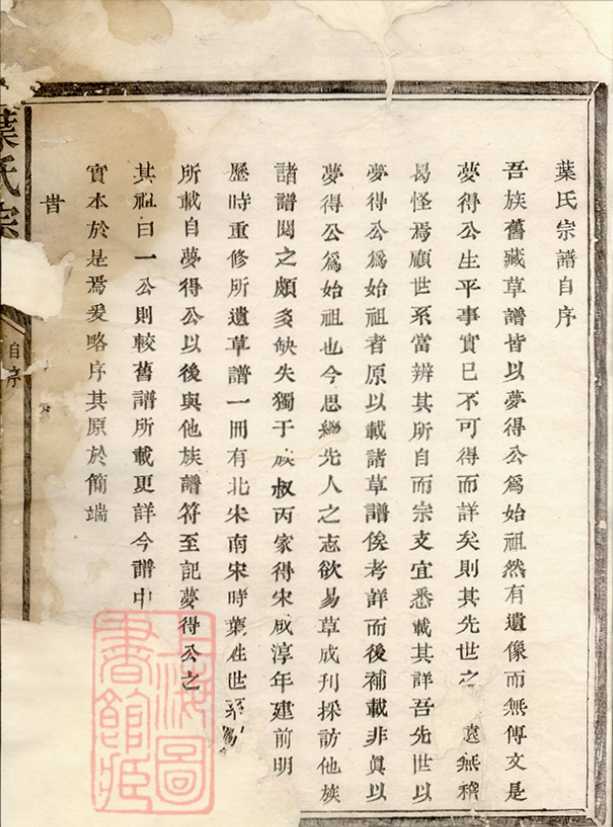 葉氏宗譜自序
吾族舊藏草譜皆以夢得公爲始祖然有遺像而無傳文是
夢得公生平事實已不可得而詳矣則其先世之遠無稽
曷怪焉顧世系當辨其所自而宗支宜悉載其詳吾先世以
夢得公爲始祖者原以載諸草譜俟考詳而後補載非眞以
夢得公爲始祖也今思繼先人之志欲易草成刊採訪他族
諸譜閱之頗多缺失獨于族叔丙家得宋咸淳年建前明
歷時重修所遺草譜一冊有北宋南宋時葉姓世系
所載自夢得公以後與他族譜符至記夢得公之
其祖曰一公則較舊譜所載更詳今譜中
實本於是焉爰略序其原於簡端
昔
葉氏宗
自序
上海圖書館藏